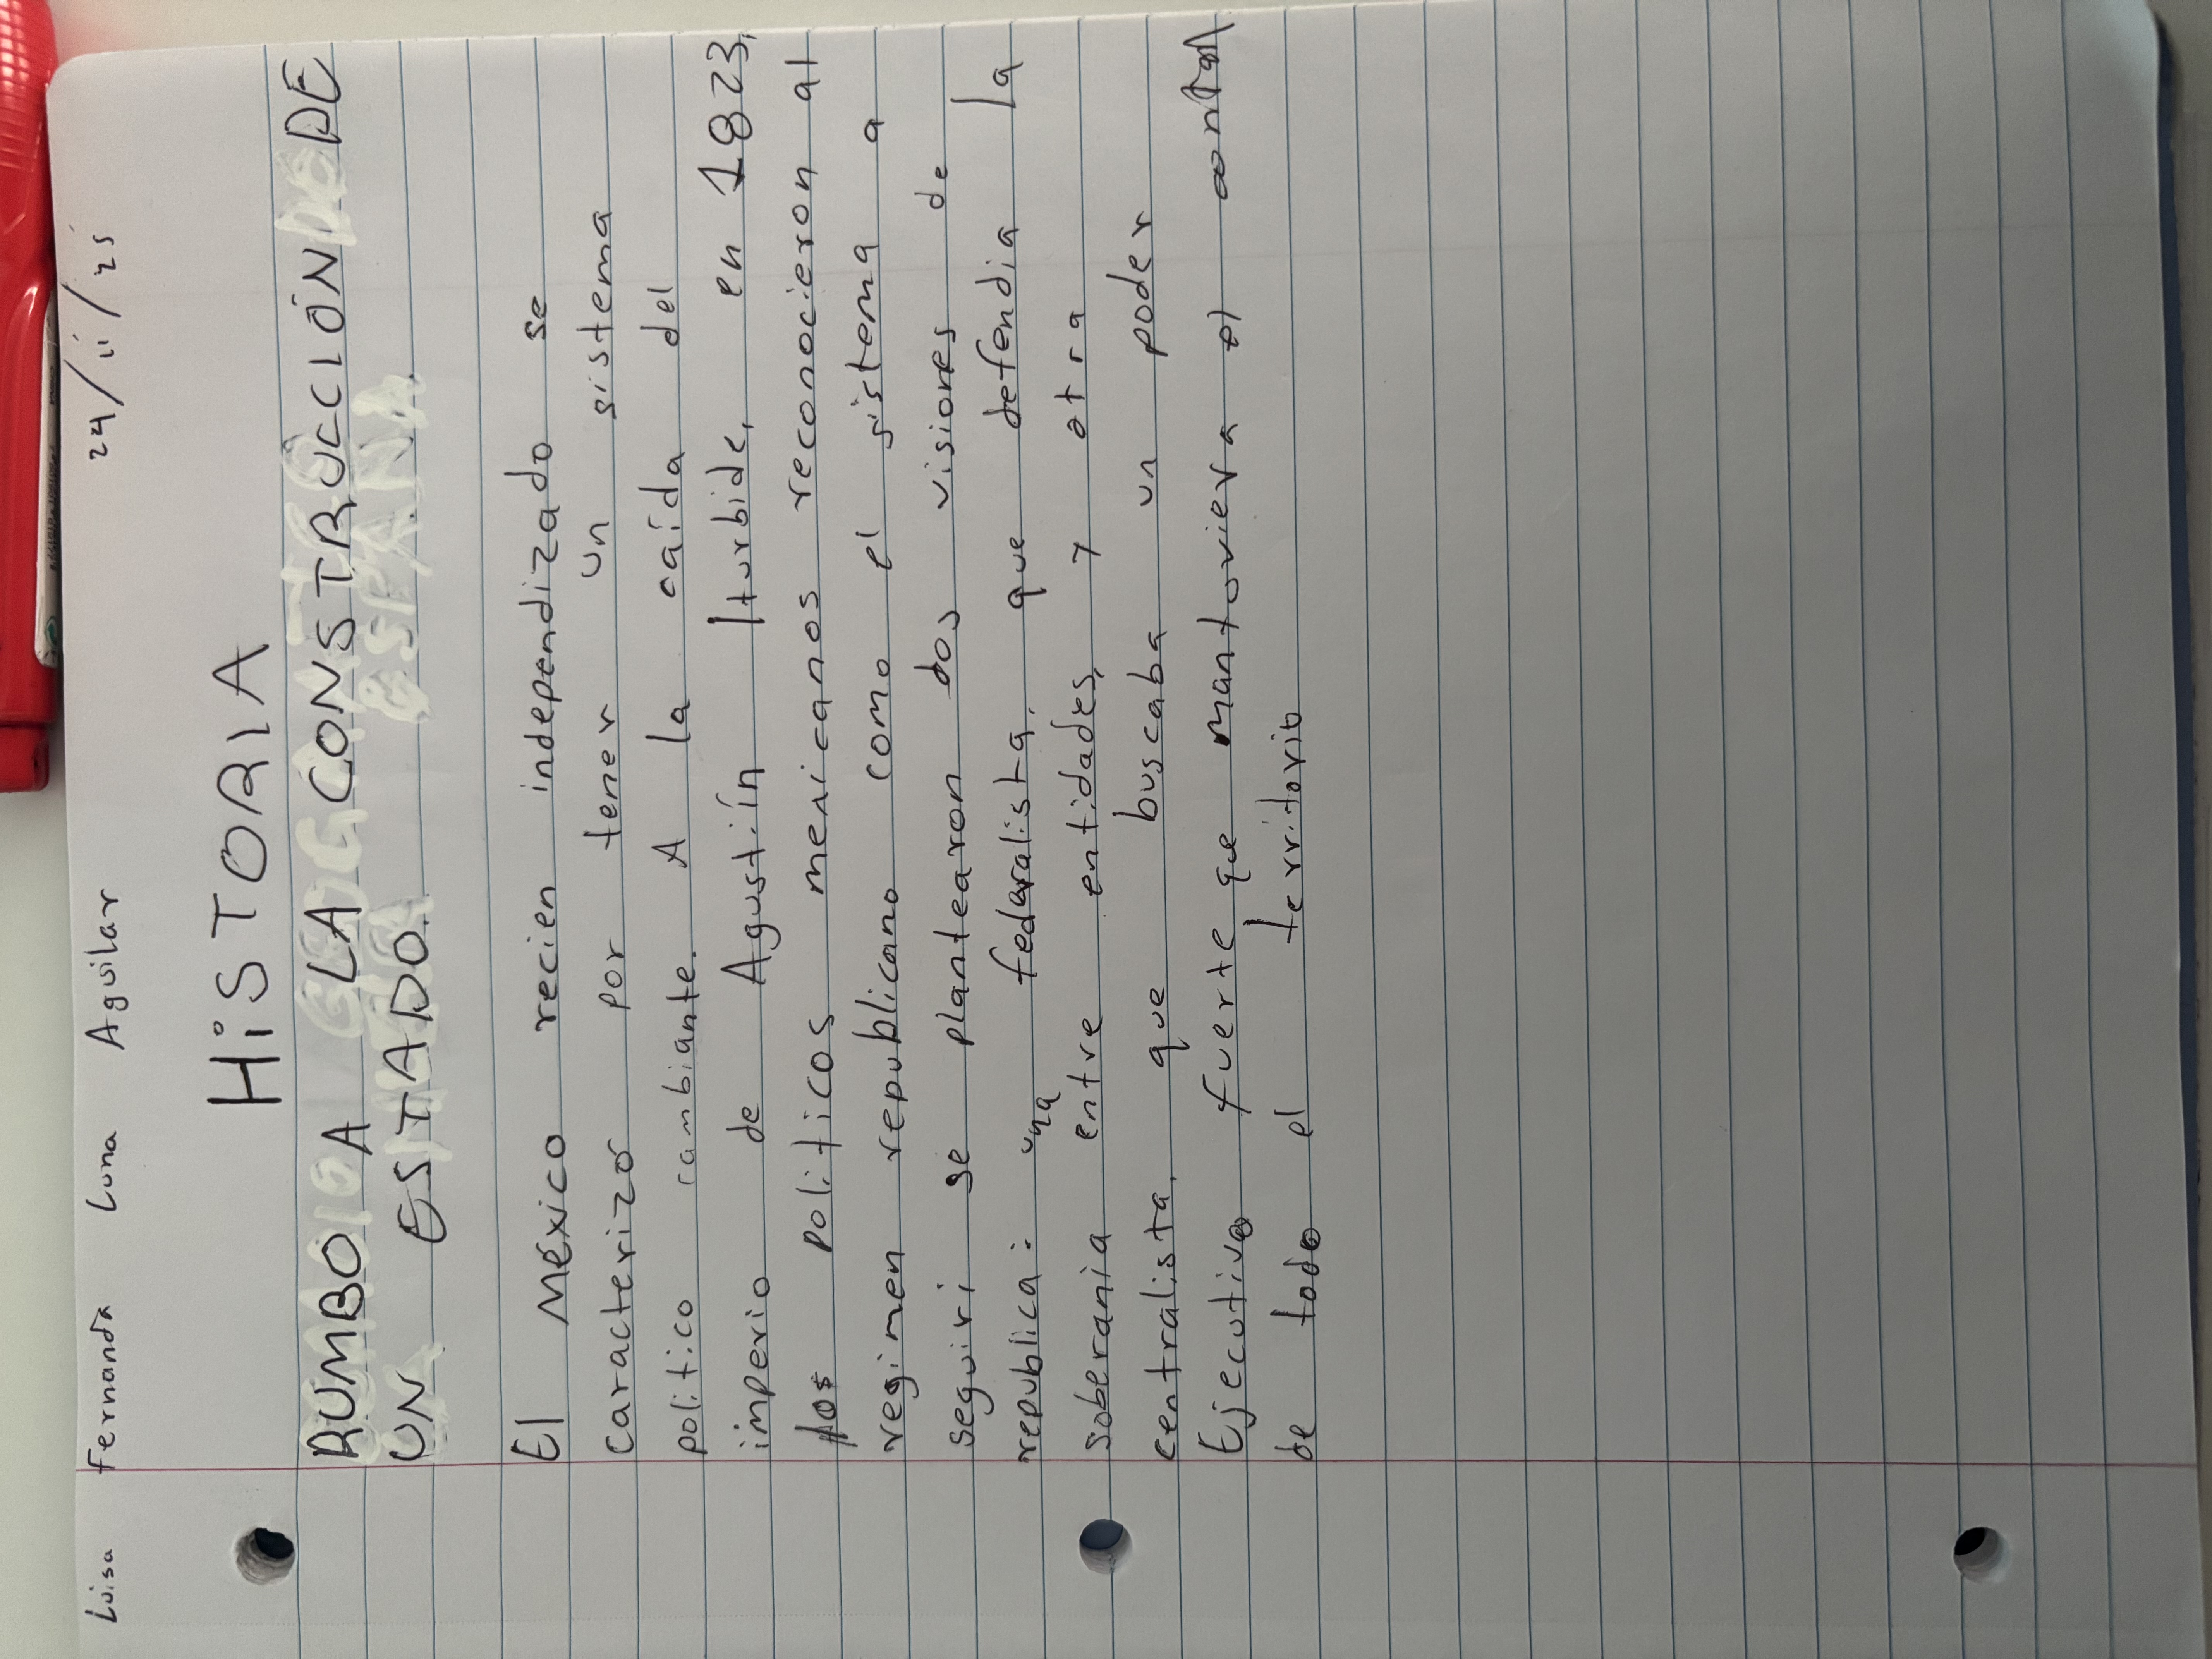 Luisa Fernanda Luna Aguilar 24/ii/25
HiSTORIA
RUMBO A LA CONSTRUCCIÓN DE
UN ESTADO.
El México recien independizado se
caracterizo por tener un sistema
politico cambiante. A la caída del
imperio de Agustíín Iturbide, en 1823,
los politicos mexicanos reconocieron al
regimen republicano como el sistema a
seguiri se plantearon dos visiones de
republica: una fedaralista, que defendia la
soberania entre entidades, y otra
centralista, que buscaba un poder
Ejecutivo fuerte que mantoviera el control
de todo el territorio